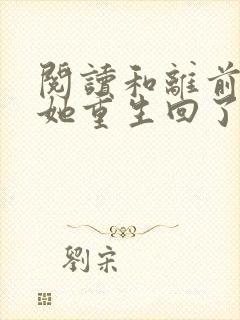 閱讀和離前
她重生回了
劉宋